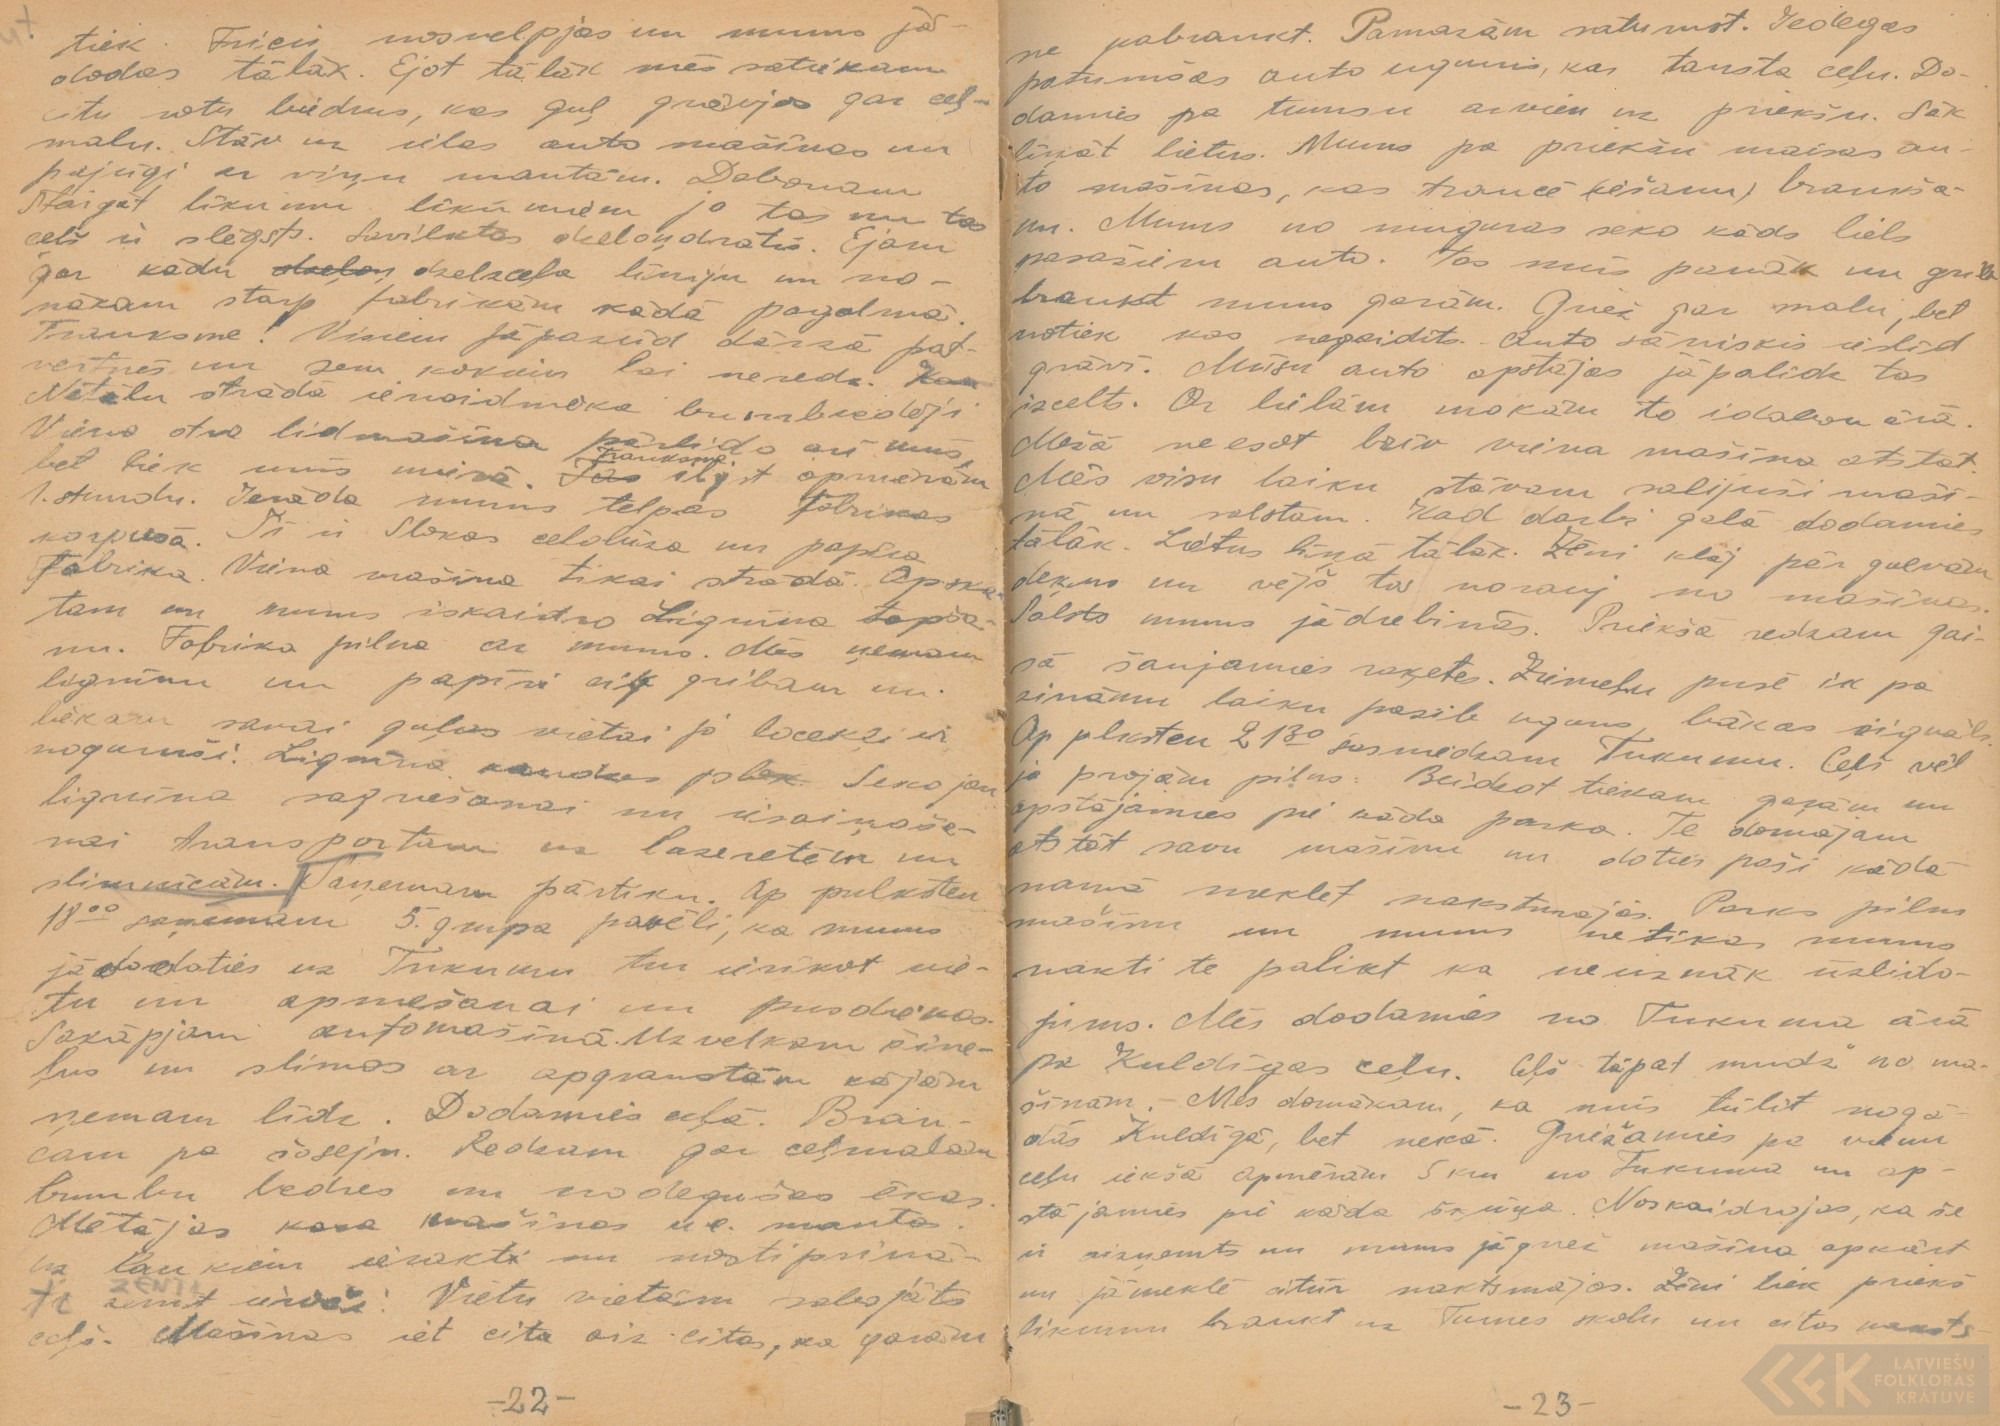 tiek. Friči nosvelpjas un mums jā-
dodas tālāk. Ejot tālāk mēs satiekam
citu rotu biedrus, kas guļ grāvjos gar ceļ-
malu. Stāv uz ielas auto mašīnas un
pajūgi ar viņu mantām. Dabonam
Staigāt līkumu līkumiem jo tas un tas
ceļš ir slēgts. Savilktas dzeloņdrātis. Ejam
gar kādu dzelzceļa līniju un no-
nākam starp fabrikām kādā pagalmā.
Trauksme! Visiem jāpazūd dārzā pat-
vertnēs un zem kokiem lai neredz.
Netālu strādā ienaidnieka bumbvedēji
Viena otra lidmašīna pārlido arī mūs,
bet liek mūs mierā. Trauksme ilgst apmēram
1. stundu. Ierāda mums telpas fabrikas
korpusā. Šī ir Slokas celulōza un papīra
fabrika. Viena mašīna tikai strādā. Apska-
tam un mums izskaidro Lignīna tapša-
nu. Fabrika pilna ar mums. Mēs ņemam
lignīnu un papīri cik gribam un
liekam savai guļas vietai jo locekļi ir
noguruši. Lignīna Seko jau
lignīna sagriešanai un iesaiņoše-
nai transportam uz lazaretēm un
slimnīcām. Saņemam pārtiku. Ap pulksten
18⁰⁰ saņemam 5. grupa pavēli, ka mums
jādodaties uz Tukumu tur ierīkot vie-
tu un apmešanai un pusdienas.
Sakāpjam automašīnā. Uzvelkam šine-
ļus un slimos ar apgrauztām kājām
ņemam līdz. Dodamies ceļā. Brau-
cam pa šoseju. Redzam gar ceļmalām
bumbu bedres un nodegušas ēkas.
Mētājas kara mašīnas un mantas.
uz laukiem ierakti un nostiprinā-
ti ZENIT Vietu vietām sabojāts
ceļš. Mašīnas iet cita aiz citas, ka garām
-22-
ne pabraukt. Pamazām satumst. Iedegas
patumšas auto ugunis, kas tausta ceļu. Do-
damies pa tumsu arvien uz priekšu. Sāk
līņāt lietus. Mums pa priekšu maisas au-
to mašīnas, kas traucē (ēšanu) braukša-
nu. Mums no muguras seko kāds liels
pasažieru auto. Tas mūs panāk un grib
braukt mums garām. Griež gar malu, bet
notiek kas negaidīts. Auto sānisks ieslīd
grāvī. Mūsu auto apstājas jāpalīdz tas
izcelt. Ar lielām mokām to idabon ārā.
Mežā neesot brīv viena mašīna atstāt.
Mēs visu laiku stāvam salijuši maši-
nā un salstam. Kad darbi galā dodamies
tālāk. Lietus līņā tālāk. Zēni klāj pār galvām
deķus un vējš tos norauj no mašīnas.
Salsts mums jādrebinās. Priekšā redzam gai-
sā šaujamies raķetes. Ziemeļu pusē ik pa
zināmu laiku pazib uguns, bākas signāls.
Ap plksten 21³⁰ sasniedzam Tukumu. Ceļš vēl
jo projām pilns. Beidzot tiekam garām un
apstājamies pie kāda parka. Te domājam
atstāt savu mašīnu un doties paši kādā
namā meklēt naksturājās. Parks pilns
mašīnu un mums netikas mums
nakti te palikt ka neuznāk uzlido-
jums. Mēs dodamies no Tukuma ārā
pa Kuldīgas ceļu. Ceļš tāpat mudž no ma-
šīnām. - Mēs domākam, ka mūs tūlīt nogā-
dās Kuldīgā, bet nekā. Griežamies pa vienu
ceļu iekšā apmēram 5 km no Tukuma un ap-
stājamies pie kāda šķūņa. Noskaidrojas, ka še
ir aizņemts un mums jāgriež mašīna apkārt
un jāmeklē citur naktsmājas. Zēni liek priekš
likumu braukt uz Tumes skolu un citas nakts-
-23-
LATVIEŠU
FOLKLORAS
KRĀTUVE